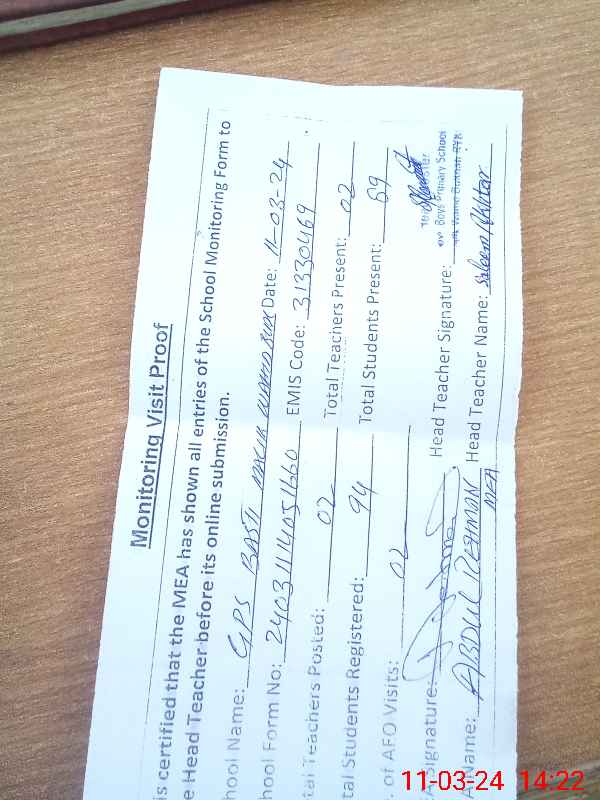 Monitoring Visit Proof
is certified that the MEA has shown all entries of the School Monitoring Form to
e Head Teacher before its online submission.
hool Name: GPS BASTI MALIK Date: 11-03-24
hool Form No: 2403111405 1660 EMIS Code: 31330469
tal Teachers Posted: 02 Total Teachers Present: 02
tal Students Registered: 94 Total Students Present: 69
. of AFO Visits: 02
A Signature: Head Teacher Signature:
Boys Primary School
A Name: ABDUL REHMAN Head Teacher Name: Saleem Akhtar
MEA
11-03-24 14:22